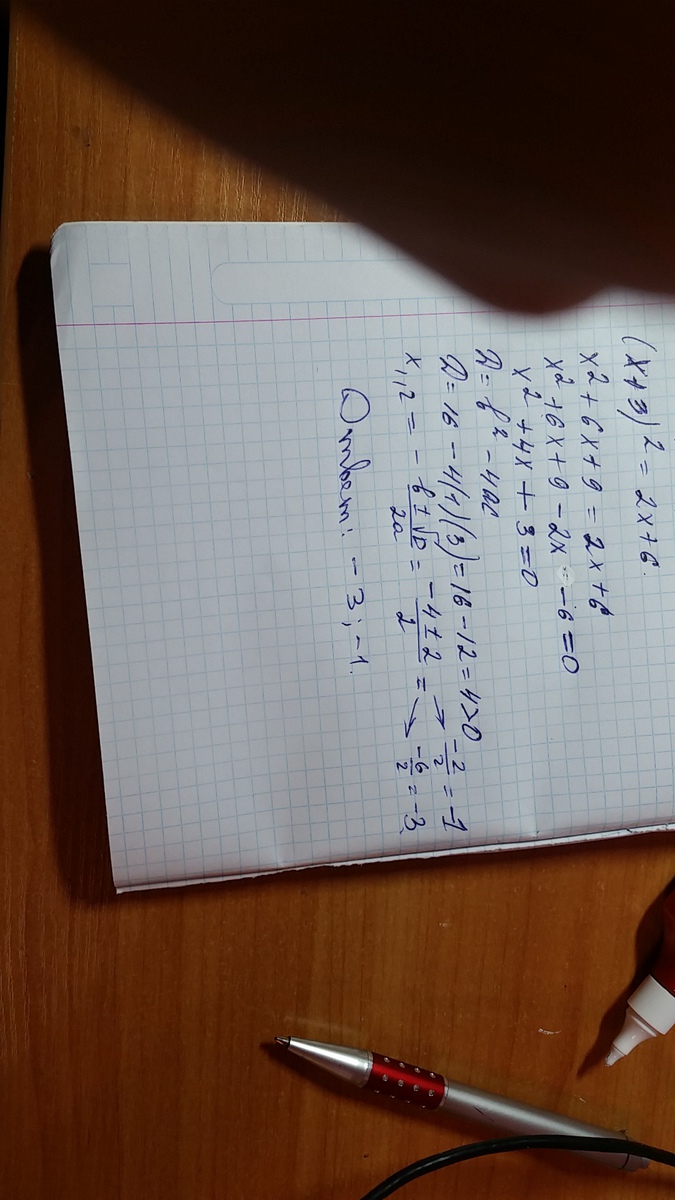 (x+3)² = 2x+6.
x²+6x+9 = 2x+6
x²+6x+9-2x-6=0
x²+4x+3=0
D=b²-4ac
D=16-4(1)(3)=16-12=4>0
x1,2 = - b±√D/2a = -4±2/2 = ↗ -2/2 = -1 ↘ -6/2 = -3.
Ответ: -3;-1.